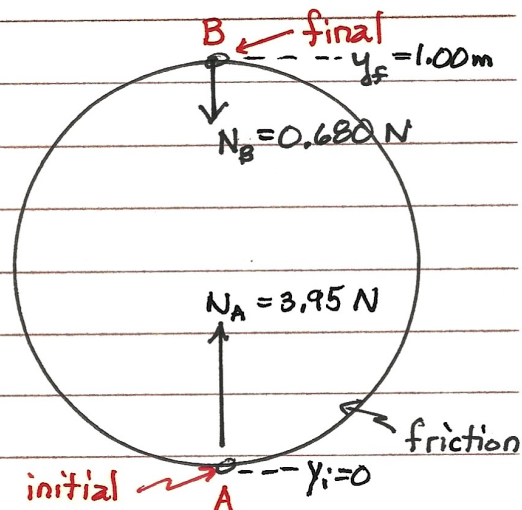 B
final
y_f = 1.00 m
N_B = 0.680 N
N_A = 3.95 N
friction
y_i = 0
initial
A